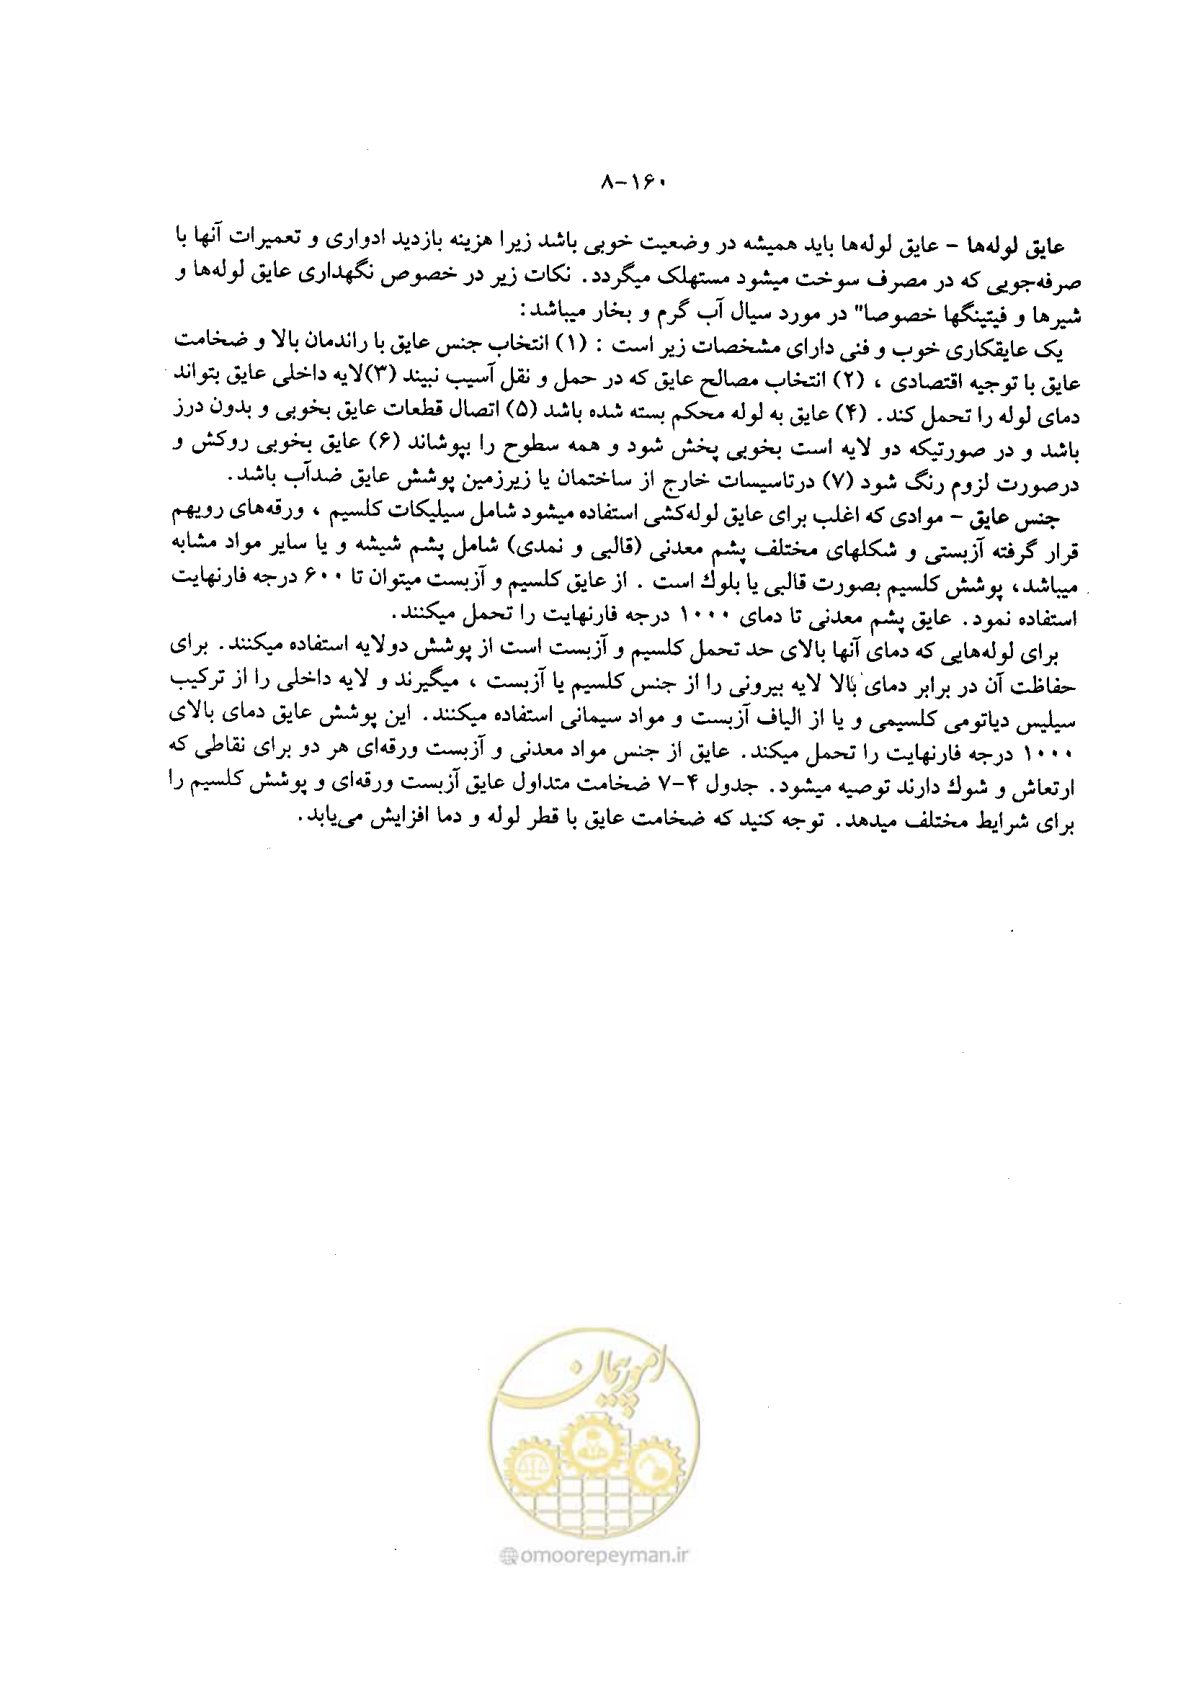 ۸-۱۶۰
عایق لوله‌ها - عایق لوله‌ها باید همیشه در وضعیت خوبی باشد زیرا هزینه بازدید ادواری و تعمیرات آنها با
صرفه‌جویی که در مصرف سوخت میشود مستهلک میگردد. نکات زیر در خصوص نگهداری عایق لوله‌ها و
شیرها و فیتینگها خصوصا" در مورد سیال آب گرم و بخار میباشد:
یک عایقکاری خوب و فنی دارای مشخصات زیر است : (۱) انتخاب جنس عایق با راندمان بالا و ضخامت
عایق با توجیه اقتصادی ، (۲) انتخاب مصالح عایق که در حمل و نقل آسیب نبیند (۳)لایه داخلی عایق بتواند
دمای لوله را تحمل کند. (۴) عایق به لوله محکم بسته شده باشد (۵) اتصال قطعات عایق بخوبی و بدون درز
باشد و در صورتیکه دو لایه است بخوبی پخش شود و همه سطوح را بپوشاند (۶) عایق بخوبی روکش و
درصورت لزوم رنگ شود (۷) درتاسیسات خارج از ساختمان یا زیرزمین پوشش عایق ضدآب باشد.
جنس عایق - موادی که اغلب برای عایق لوله‌کشی استفاده میشود شامل سیلیکات کلسیم ، ورقه‌های رویهم
قرار گرفته آزبستی و شکلهای مختلف پشم معدنی (قالبی و نمدی) شامل پشم شیشه و یا سایر مواد مشابه
میباشد، پوشش کلسیم بصورت قالبی یا بلوك است . از عایق کلسیم و آزبست میتوان تا ۶۰۰ درجه فارنهایت
استفاده نمود. عایق پشم معدنی تا دمای ۱۰۰۰ درجه فارنهایت را تحمل میکنند.
برای لوله‌هایی که دمای آنها بالای حد تحمل کلسیم و آزبست است از پوشش دولایه استفاده میکنند. برای
حفاظت آن در برابر دمای بالا لایه بیرونی را از جنس کلسیم یا آزبست ، میگیرند و لایه داخلی را از ترکیب
سیلیس دیاتومی کلسیمی و یا از الیاف آزبست و مواد سیمانی استفاده میکنند. این پوشش عایق دمای بالای
۱۰۰۰ درجه فارنهایت را تحمل میکند. عایق از جنس مواد معدنی و آزبست ورقه‌ای هر دو برای نقاطی که
ارتعاش و شوك دارند توصیه میشود. جدول ۴-۷ ضخامت متداول عایق آزبست ورقه‌ای و پوشش کلسیم را
برای شرایط مختلف میدهد. توجه کنید که ضخامت عایق با قطر لوله و دما افزایش می‌یابد.
امور پیمان
@omoorepeyman.ir